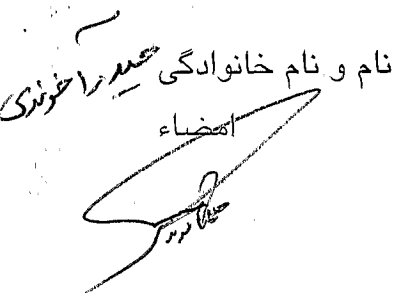 نام و نام خانوادگی حمید آخوندی
امضاء